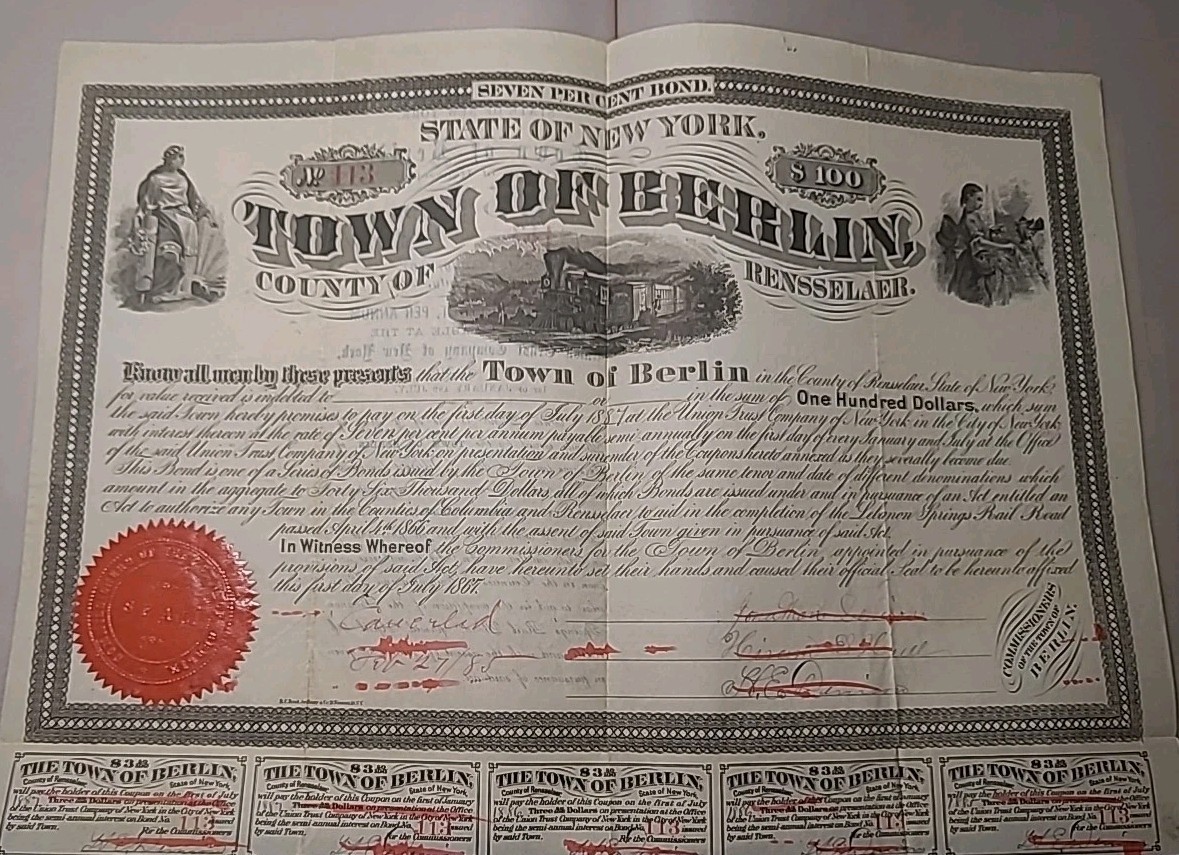 SEVEN PER CENT BOND.
STATE OF NEW YORK.
No 113
$100
TOWN OF BERLIN,
COUNTY OF RENSSELAER.
Know all men by these presents that the Town of Berlin in the County of Rensselaer, State of New York,
for value received is indebted to or in the sum of One Hundred Dollars, which sum
the said Town hereby promises to pay on the first day of July 1887 at the Union Trust Company of New York in the City of New York
with interest thereon at the rate of Seven per cent per annum payable semi annually on the first day of every January and July at the Office
of the said Union Trust Company of New York on presentation and surrender of the Coupons hereto annexed as they severally become due.
This Bond is one of a Series of Bonds issued by the Town of Berlin of the same tenor and date of different denominations which
amount in the aggregate to Forty Six Thousand Dollars all of which Bonds are issued under and in pursuance of an Act entitled an
Act to authorize any Town in the Counties of Columbia and Rensselaer to aid in the completion of the Lebanon Springs Rail Road
passed April 4th 1866 and with the assent of said Town given in pursuance of said Act.
In Witness Whereof the Commissioners for the Town of Berlin appointed in pursuance of the
provisions of said Act, have hereunto set their hands and caused their official Seal to be hereunto affixed
this first day of July 1867.
Cancelled
COMMISSIONERS
OF THE TOWN OF
BERLIN.
SEAL
THE TOWN OF BERLIN,
County of Rensselaer State of New York,
will pay the holder of this Coupon on the first of July
Three Dollars on presentation at the Office
of the Union Trust Company of New York in the City of New York
being the semi annual interest on Bond No.
by said Town.
For the Commissioners
THE TOWN OF BERLIN,
County of Rensselaer State of New York,
will pay the holder of this Coupon on the first of January
Three Dollars on presentation at the Office
of the Union Trust Company of New York in the City of New York
being the semi annual interest on Bond No. 113 issued
by said Town. For the Commissioners
THE TOWN OF BERLIN,
County of Rensselaer State of New York,
will pay the holder of this Coupon on the first of July
Dollars on presentation at the Office
of the Union Trust Company of New York in the City of New York
being the semi annual interest on Bond No. 113 issued
by said Town. For the Commissioners
THE TOWN OF BERLIN,
County of Rensselaer State of New York,
will pay the holder of this Coupon on the first of January
Three Dollars on presentation at the Office
of the Union Trust Company of New York in the City of New York
being the semi annual interest on Bond No. 113 issued
by said Town. for the Commissioners
THE TOWN OF BERLIN,
County of Rensselaer State of New York,
will pay the holder of this Coupon on the first of July
Three Dollars on presentation at the Office
of the Union Trust Company of New York in the City of New York
being the semi annual interest on Bond No. 113 issued
by said Town. for the Commissioners